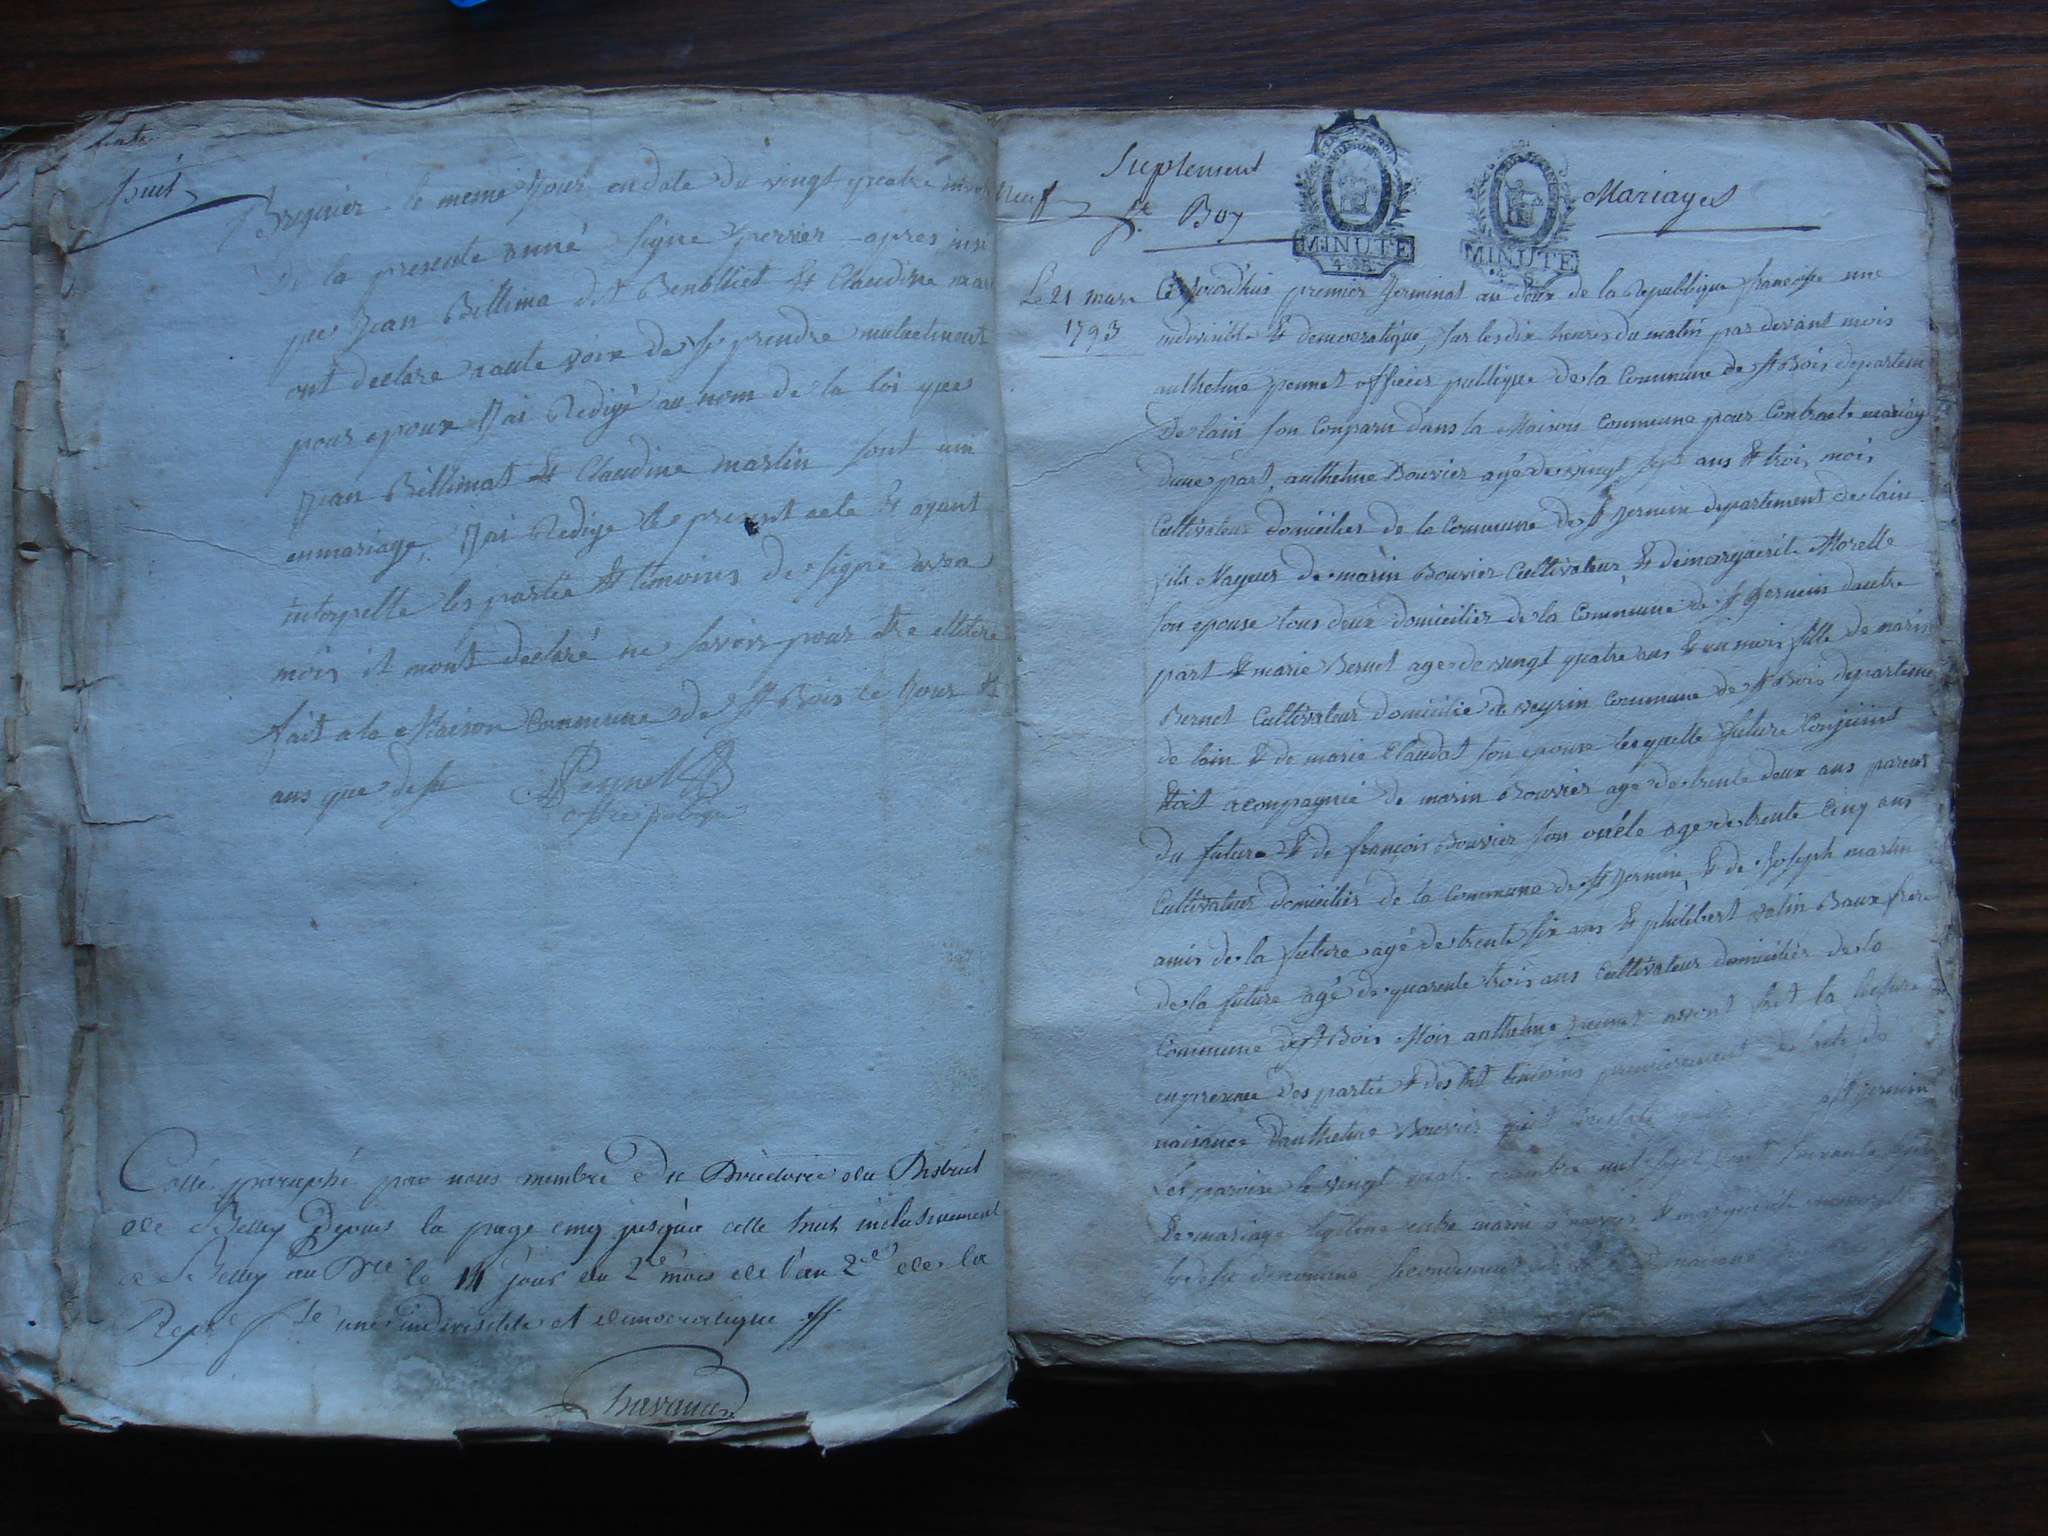 huit
Bregnier le meme jour en date du vingt quatre
de la presente anné signe perrier apres
que Jean Billima dit Benolliet & Claudine mar
ont declare haute voix de se prendre mutuelment
pour epoux J'ai Redigé au nom de la loi que
Jean Billimat & Claudine martin sont uni
en mariage, J'ai Redige le present acte & ayant
interpelle les partie & temoins de signé avec
mois it mont declaré ne savoir pour etre
fait a la Maison Commune de St Bois le jour &
ans que dessu
Pennet
offici publique
Cotté paraphé par nous membre du Directoire du District
de Belley Depuis la page cinq jusqu'a celle huit inclusivement
a Belley au Dre le 14 jour du 2e mois de l'an 2e de la
Repe fse une indivisible et democratique
Neuf
Suplement
St Boy
MINUTE
4. S.
MINUTE
4. S.
Mariages
Le 21 mars
1793
Cejourd'hui premier Jerminal an deux de la Republique francoise une
indivisible & democratique, sur les dix heures du matin par devant mois
anthelme pennet officier publique de la Commune de St Bois departem
De lain son Comparu dans la Maison Commune pour Contracte mariag
dune part, anthelme Bouvier agé de vingt sept ans & trois mois
Cultivateur domicilier de la Commune de St Jermin departement de lain
fils Mageur de marin Bouvier Cultivateur & de marguerite Morelle
son epouse tous deux domicilier de la Commune de St Jermin dautre
part & marie Bernet age de vingt quatre ans & un mois fille de marin
Bernet Cultivateur domicilié a veyrin Commune de St Bois departeme
de lain & de marie Claudat son epouse lesquelle future Conjoint
etoit acompagnié de marin Bouvier agé de trente deux ans parent
du future & de françois Bouvier son oncle age de trente Cinq ans
Cultivateur domicilier de la Commune de St Jermin & de Joseph martin
amis de la future agé de trente six ans & philibert vatin Baux frere
de la future agé de quarente trois ans Cultivateur domicilier de la
Commune de St Bois Mois anthelme pennet avont fait la lecture
en presence des partie & des dit temoins premierement de lacte de
naisance Danthelme Bouvier qui Constate St Jermin
Les paroisse le vingt quatre mil sept Cent soixante
De mariage legitime entre marin Bouvier & marguerite